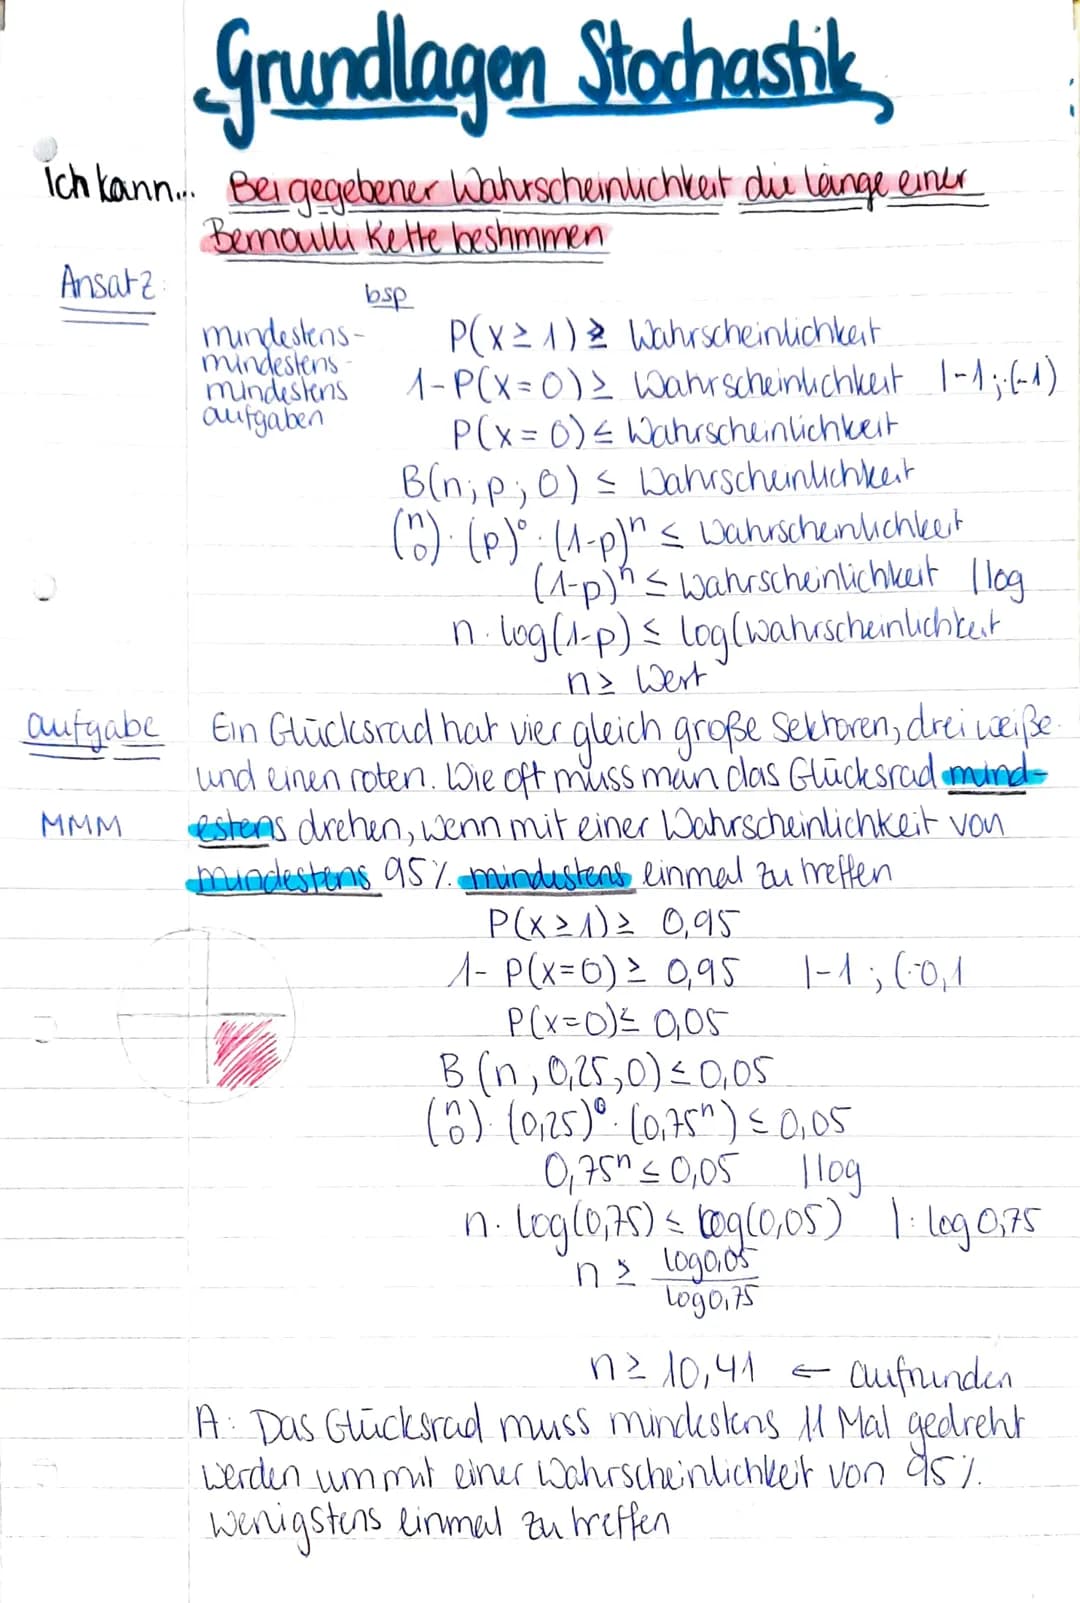 Grundlagen Stochastik
Ich kann... Bei gegebener Wahrscheinlichkeit die länge einer
Bernoulli Kette bestimmen
Ansatz:
bsp
mindestens-
mindestens-
mindestens
aufgaben
P(X ≥ 1) ≥ Wahrscheinlichkeit
1-P(X=0) ≥ Wahrscheinlichkeit |-1; ·(-1)
P(X=0) ≤ Wahrscheinlichkeit
B(n; p; 0) ≤ Wahrscheinlichkeit
(n 0) · (p)⁰ · (1-p)ⁿ ≤ Wahrscheinlichkeit
(1-p)ⁿ ≤ Wahrscheinlichkeit | log
n · log(1-p) ≤ log(Wahrscheinlichkeit
n ≥ Wert
aufgabe Ein Glücksrad hat vier gleich große Sektoren, drei weiße
und einen roten. Wie oft muss man das Glücksrad mind-
MMM estens drehen, wenn mit einer Wahrscheinlichkeit von
mindestens 95%. mindestens einmal zu treffen
P(X ≥ 1) ≥ 0,95
1- P(X=0) ≥ 0,95 |-1; (·0,1
P(X=0) ≤ 0,05
B(n, 0,25, 0) ≤ 0,05
(n 0) · (0,25)⁰ · (0,75ⁿ) ≤ 0,05
0,75ⁿ ≤ 0,05 | log
n · log(0,75) ≤ log(0,05) | : log 0,75
n ≥ log0,05 / log0,75
n ≥ 10,41 ← aufrunden
A: Das Glücksrad muss mindestens 11 Mal gedreht
werden um mit einer Wahrscheinlichkeit von 95%.
wenigstens einmal zu treffen